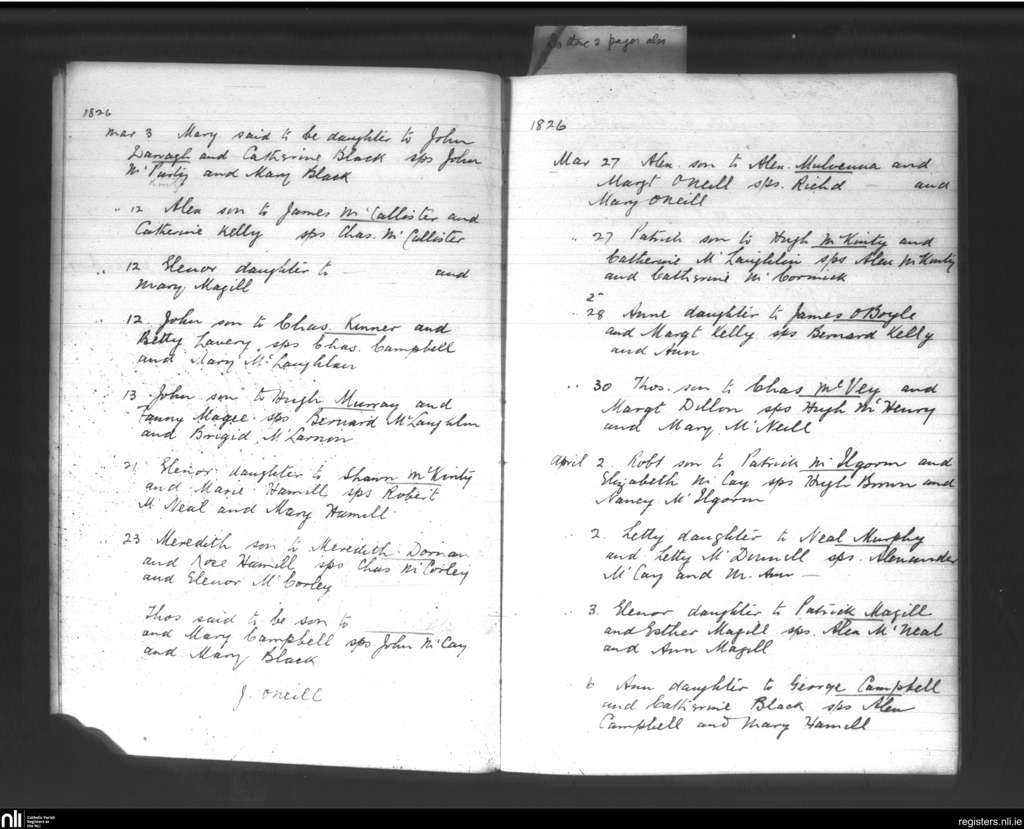 Do these 2 pages also
1826
Mar 3 Mary said to be daughter to John
Darragh and Catherine Black sps John
and Mary Black
" 12 Alex son to James McCallister and
Catherine Kelly sps Chas. McCallister
" 12 Elenor daughter to — and
Mary Magill
" 12 John son to Chas. Kenner and
Betty Lavery sps Chas. Campbell
and Mary McLaughlan
" 13 John son to Hugh Murray and
Fanny Magee sps Bernard McLaughlin
and Brigid McLarnon
" 21 Elenor daughter to Shawn McKinty
and Marie Hamill sps Robert
McNeal and Mary Hamill
" 23 Meredith son to Meredith Dornan
and Rose Hamill sps Chas McCorley
and Elenor McCorley
Thos said to be son to
and Mary Campbell sps John McCay
and Mary Black
J. ONeill
1826
Mar 27 Alex. son to Alex. Mulvenna and
Margt ONeill sps. Richd — and
Mary ONeill
" 27 Patrick son to Hugh McKinty and
Catherine McLaughlin sps Alex McKinty
and Catherine McCormick
2
" 28 Anne daughter to James OBoyle
and Margt Kelly sps Bernard Kelly
and Ann
" 30 Thos. son to Chas McVey and
Margt Dillon sps Hugh McHenry
and Mary McNeill
April 2 Robt son to Patrick McIlgorm and
Elizabeth McCay sps Hugh Brown and
Nancy McIlgorm
" 2. Letty daughter to Neal Murphy
and Letty McDonnell sps. Alexander
McCay and M. Ann —
" 3. Elenor daughter to Patrick Magill
and Esther Magill sps. Alex McNeal
and Ann Magill
" 6 Ann daughter to George Campbell
and Catherine Black sps Alex
Campbell and Mary Hamill
nli Catholic Parish Registers at the NLI
registers.nli.ie